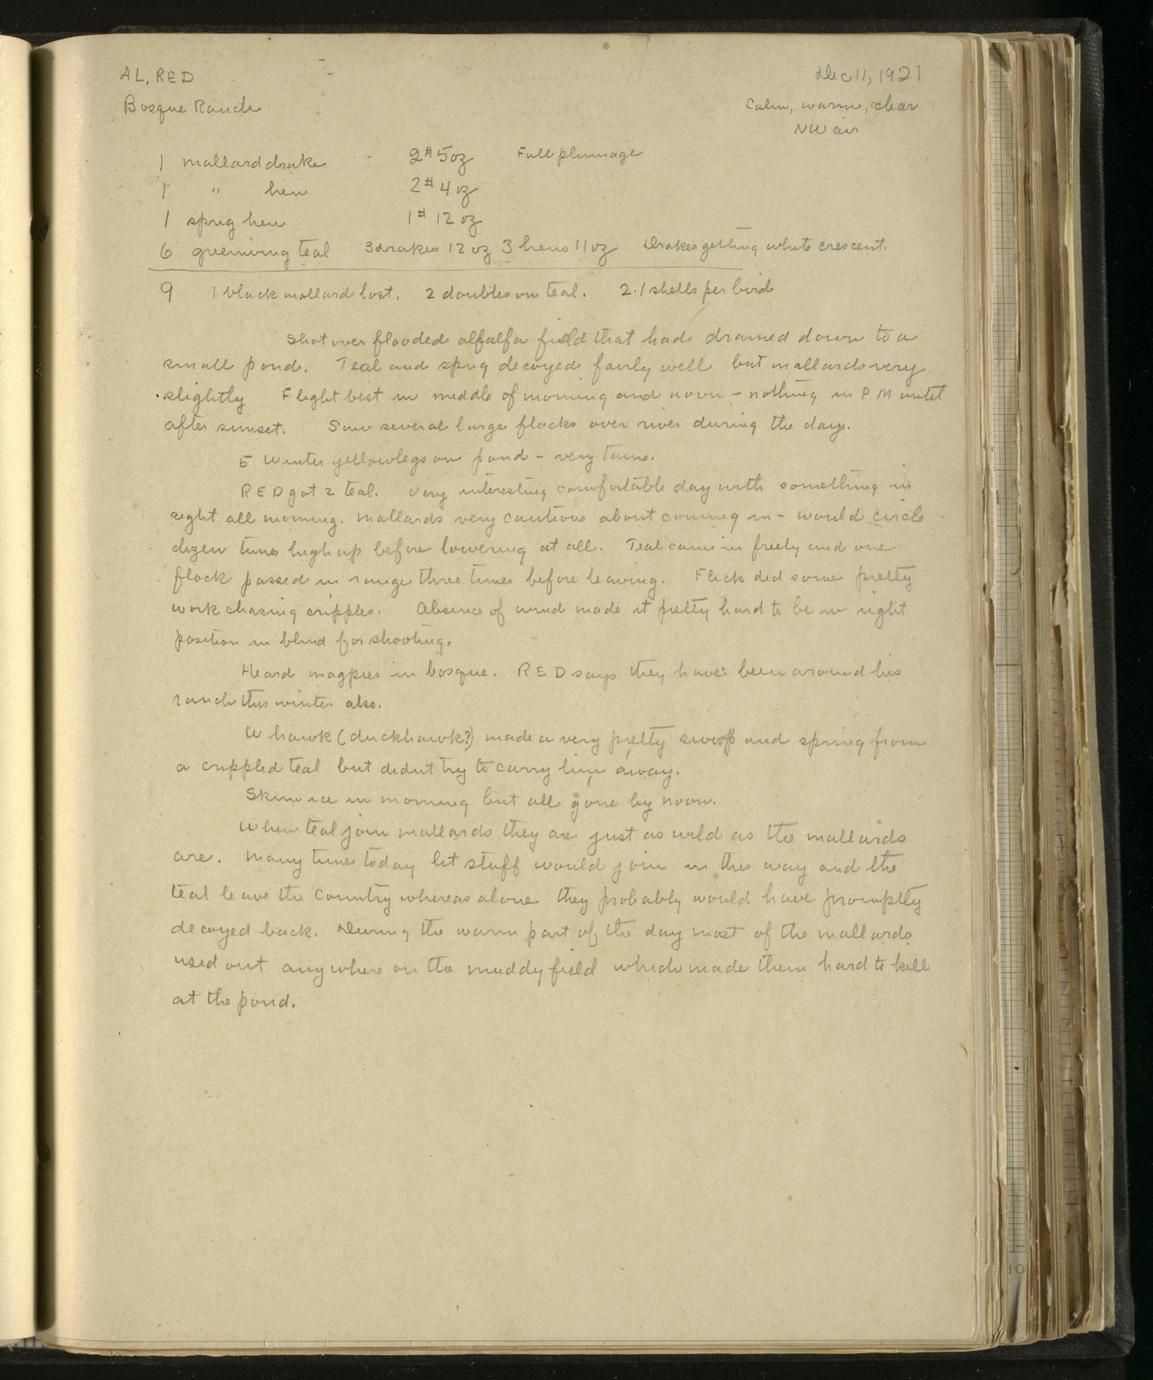 AL, RED
Dec 11, 1921
Bosque Ranch
Calm, warm, clear
NW air
1 mallard drake 2# 5oz Full plumage
1 " hen 2# 4 oz
1 sprig hen 1# 12 oz
6 greenwing teal 3 drakes 12 oz 3 hens 11 oz Drakes getting white crescent.
9 1 black mallard lost. 2 doubles on teal. 2.1 shells per bird
Shot over flooded alfalfa field that had drained down to a
small pond. Teal and sprig decoyed fairly well but mallards very
slightly Flight best in middle of morning and noon - nothing in P M until
after sunset. Saw several large flocks over river during the day.
5 Winter yellowlegs on pond - very tame.
RED got 2 teal. Very interesting comfortable day with something in
sight all morning. Mallards very cautious about coming in - would circle
dozen times high up before lowering at all. Teal came in freely and one
flock passed in range three times before leaving. Flick did some pretty
work chasing cripples. Absence of wind made it pretty hard to be in right
position in blind for shooting.
Heard magpies in bosque. RED says they have been around his
ranch this winter also.
A hawk (duckhawk?) made a very pretty swoop and spring from
a crippled teal but didnt try to carry him away.
Skim ice in morning but all gone by noon.
When teal join mallards they are just as wild as the mallards
are. Many times today lit stuff would join in this way and the
teal leave the country whereas alone they probably would have promptly
decoyed back. During the warm part of the day most of the mallards
used out anywhere on the muddy field which made them hard to kill
at the pond.
10